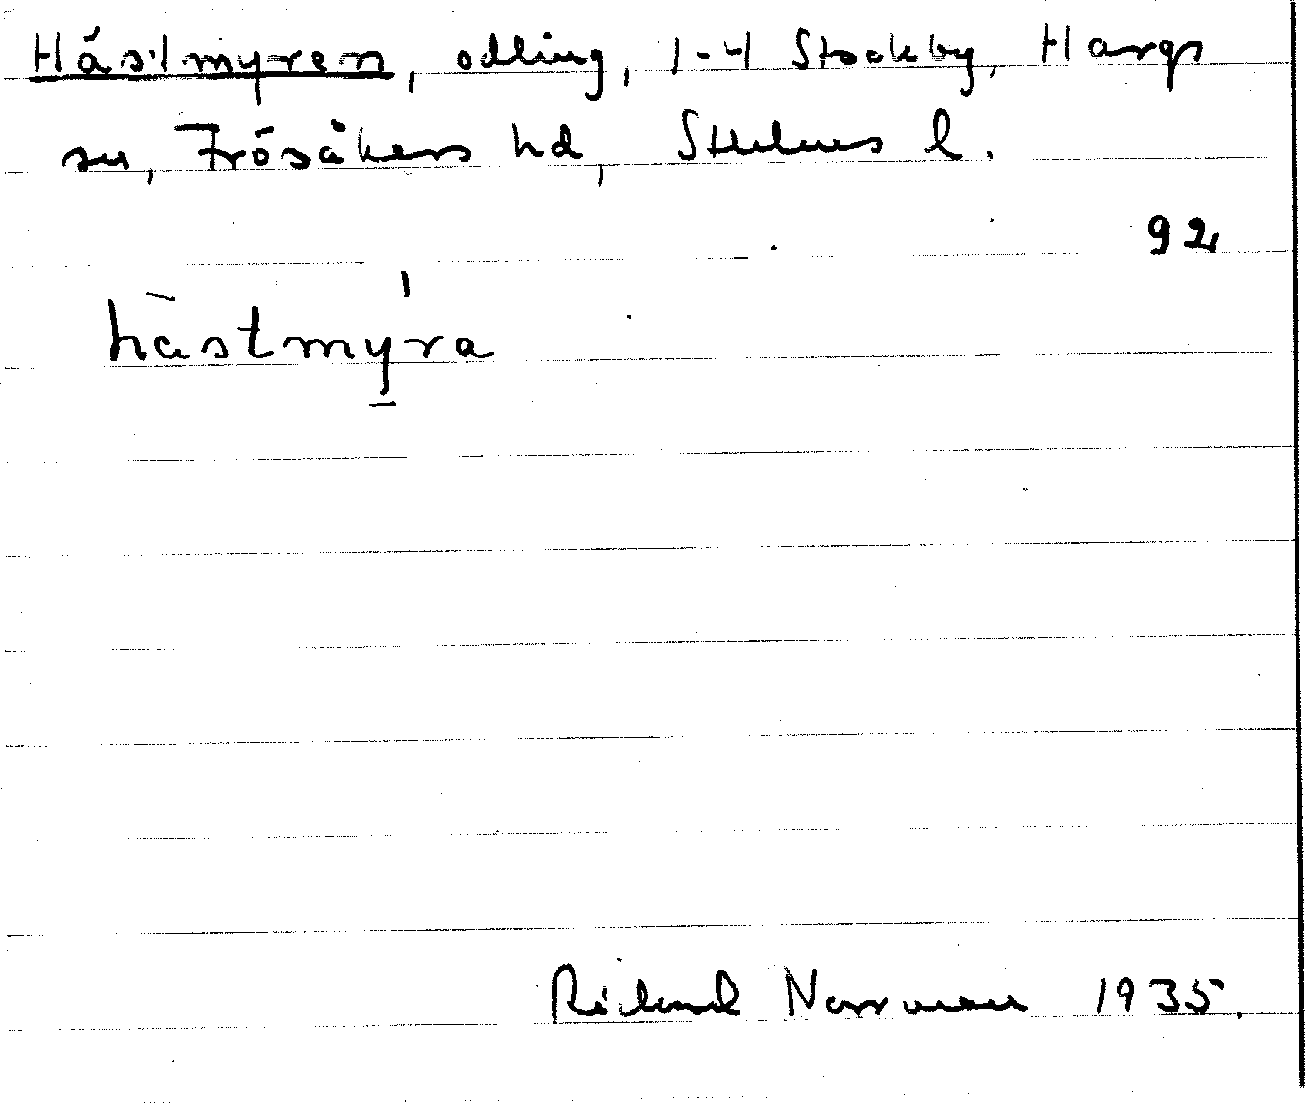 Hästmyren, odling, 1-4 Stockby, Hargs
sn, Frösåkers hd, Sthlms l.
92
hästmy̱ra
Rickard Norrman 1935.